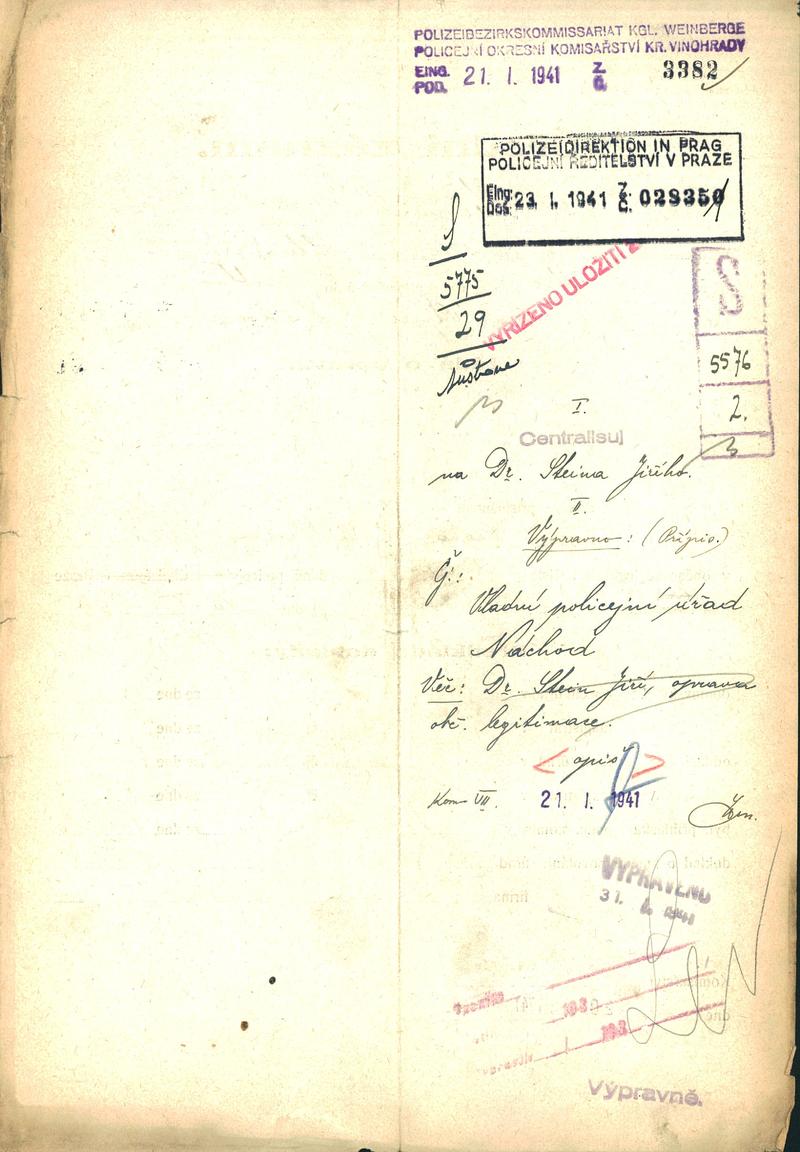 POLIZEIBEZIRKSKOMMISSARIAT KGL. WEINBERGE
POLICEJNÍ OKRESNÍ KOMISAŘSTVÍ KR. VINOHRADY
EING.
POD. 21. I. 1941 Z.
Č. 3382
POLIZEIDIREKTION IN PRAG
POLICEJNÍ ŘEDITELSTVÍ V PRAZE
Eing:
Doš: 23. I. 1941 Z.
Č. 028350
VYŘÍZENO ULOŽITI
S
5775
29
S
5576
2.
I.
Centralisuj
na Dr. Steina Jiřího.
II.
Výpravno: (Přípis.)
Vládní policejní úřad
Náchod
Věc: Dr. Stein Jiří, oprava
obč. legitimace.
opis
Kom VII. 21. I. 1941
VYPRAVENO
31. I. 1941
193
193
Výpravně.